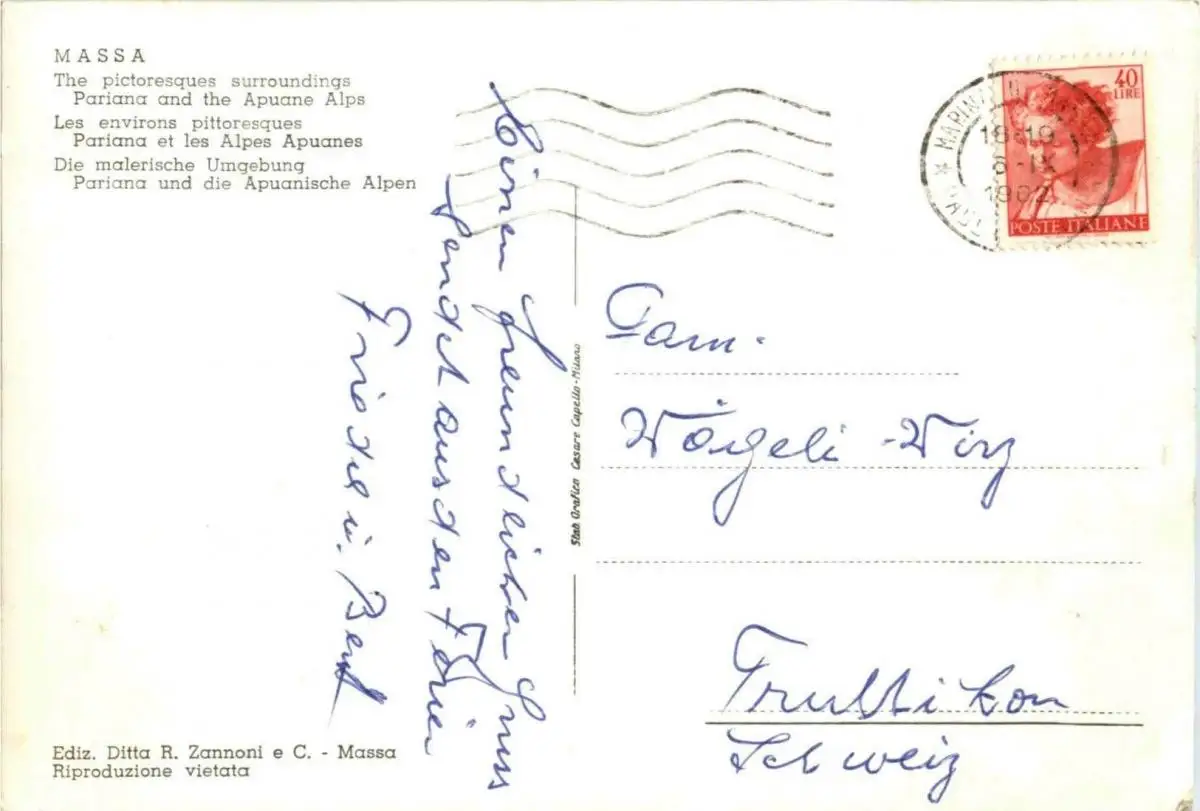 MASSA
The pictoresques surroundings
Pariana and the Apuane Alps
Les environs pittoresques
Pariana et les Alpes Apuanes
Die malerische Umgebung
Pariana und die Apuanische Alpen
40
LIRE
POSTE ITALIANE
18-19
6-IX
1962
Einen freundlichen Gruss
sendet aus den Ferien
Friedel u.
Stab. Grafico Cesare Capello-Milano
Fam.
Vögeli-Wirz
Truttikon
Schweiz
Ediz. Ditta R. Zannoni e C. - Massa
Riproduzione vietata